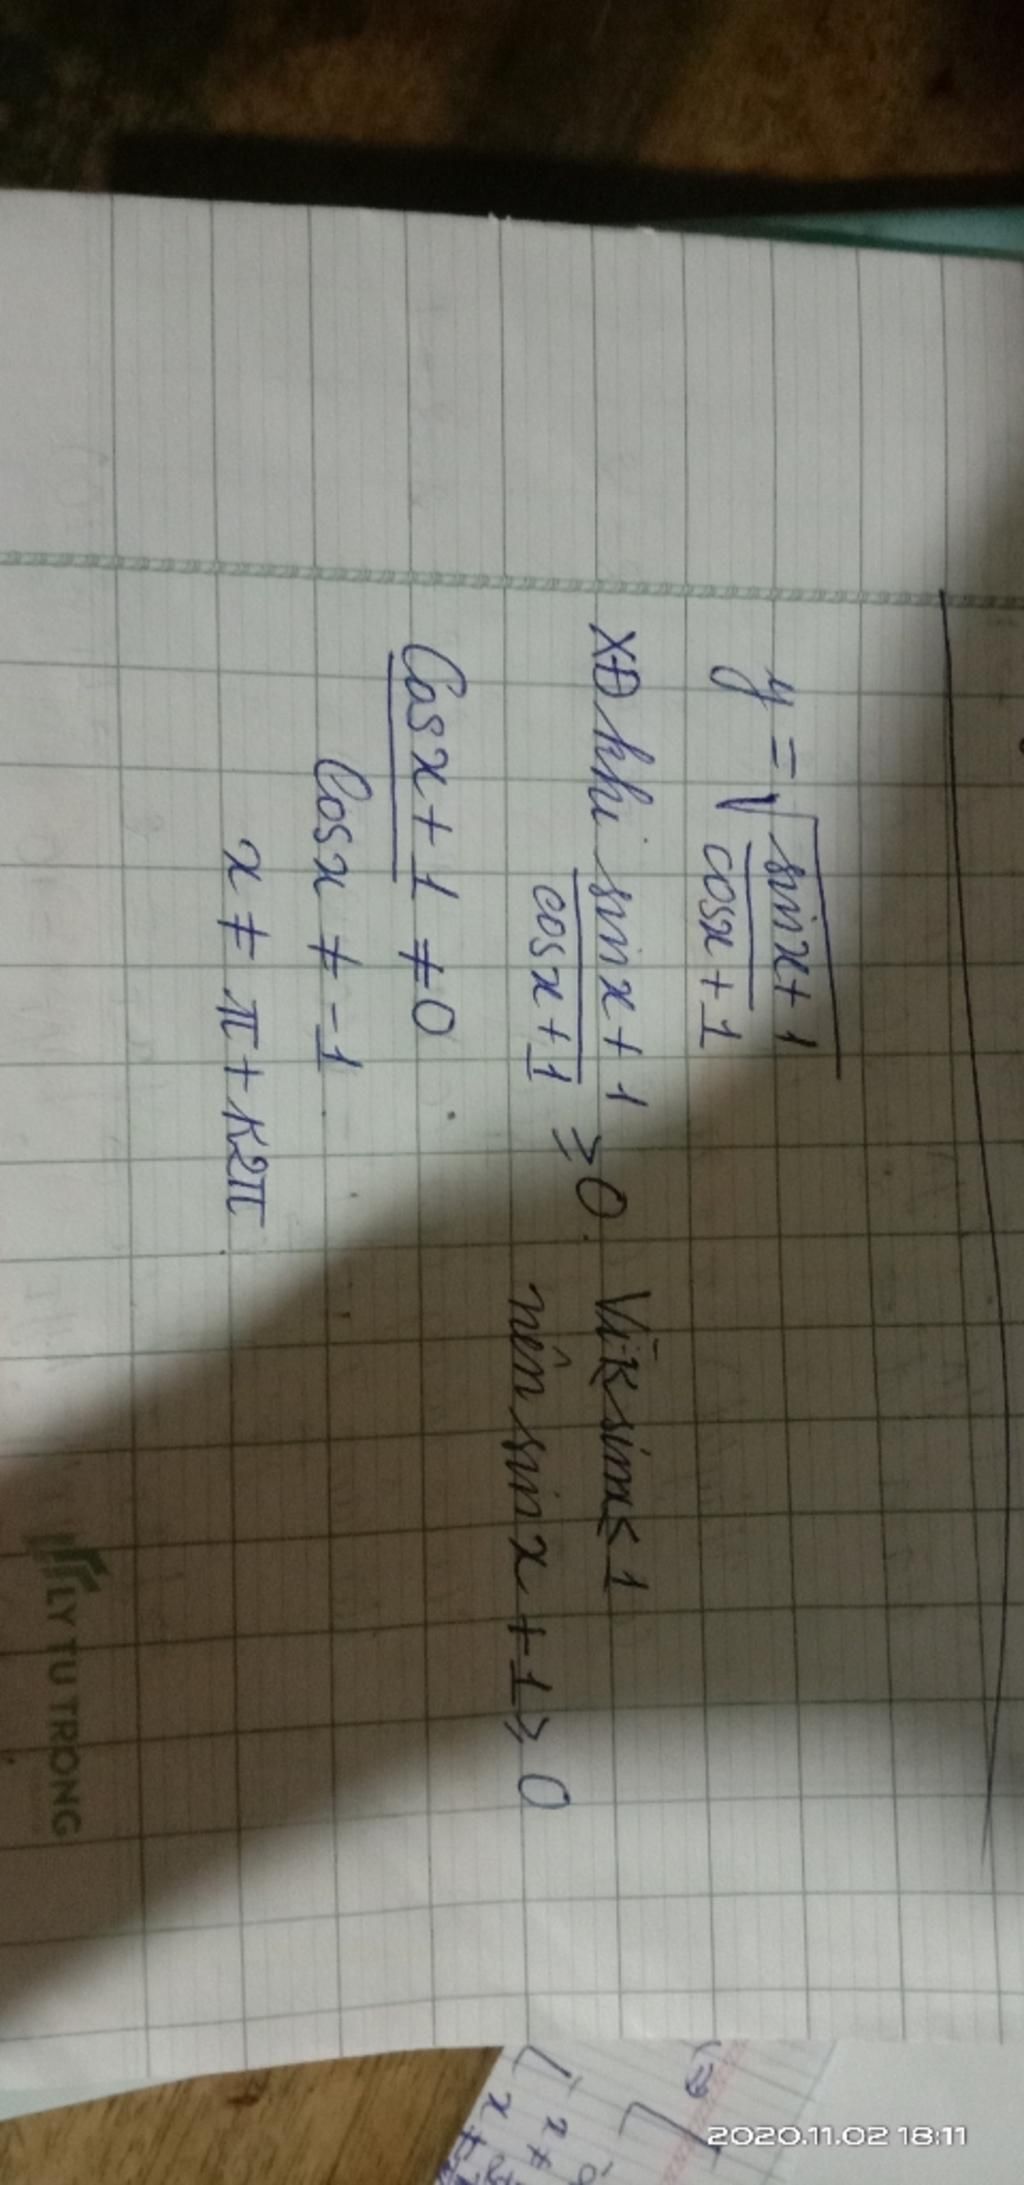 y = √(sinx + 1 / cosx + 1)
XĐ khi sinx + 1 / cosx + 1 ≥ 0. Vì sinx ≤ 1
nên sinx + 1 ≥ 0
Cosx + 1 ≠ 0
Cosx ≠ -1
x ≠ π + k2π
LY TU TRONG
2020.11.02 18:11